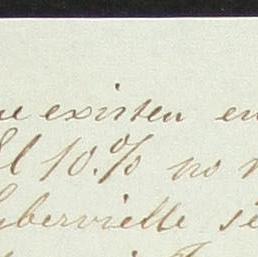 ue existen en
El 10.% no
yberville se